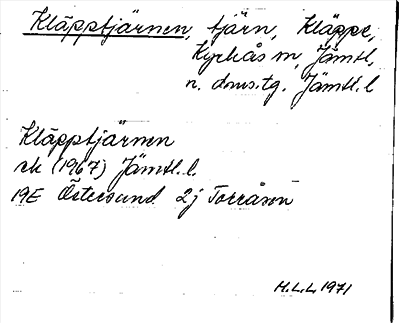 Kläpptjärnen, tjärn, Kläppe,
Kyrkås sn, Jämtl,
n. doms.tg. Jämtl. l
Kläpptjärnen
ek (1967) Jämtl. l.
19E Östersund 2j Torråsen
H.L.L 1971